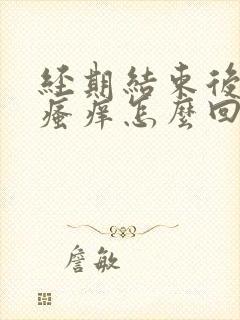 經期結束後
瘙癢怎麼回
詹敏